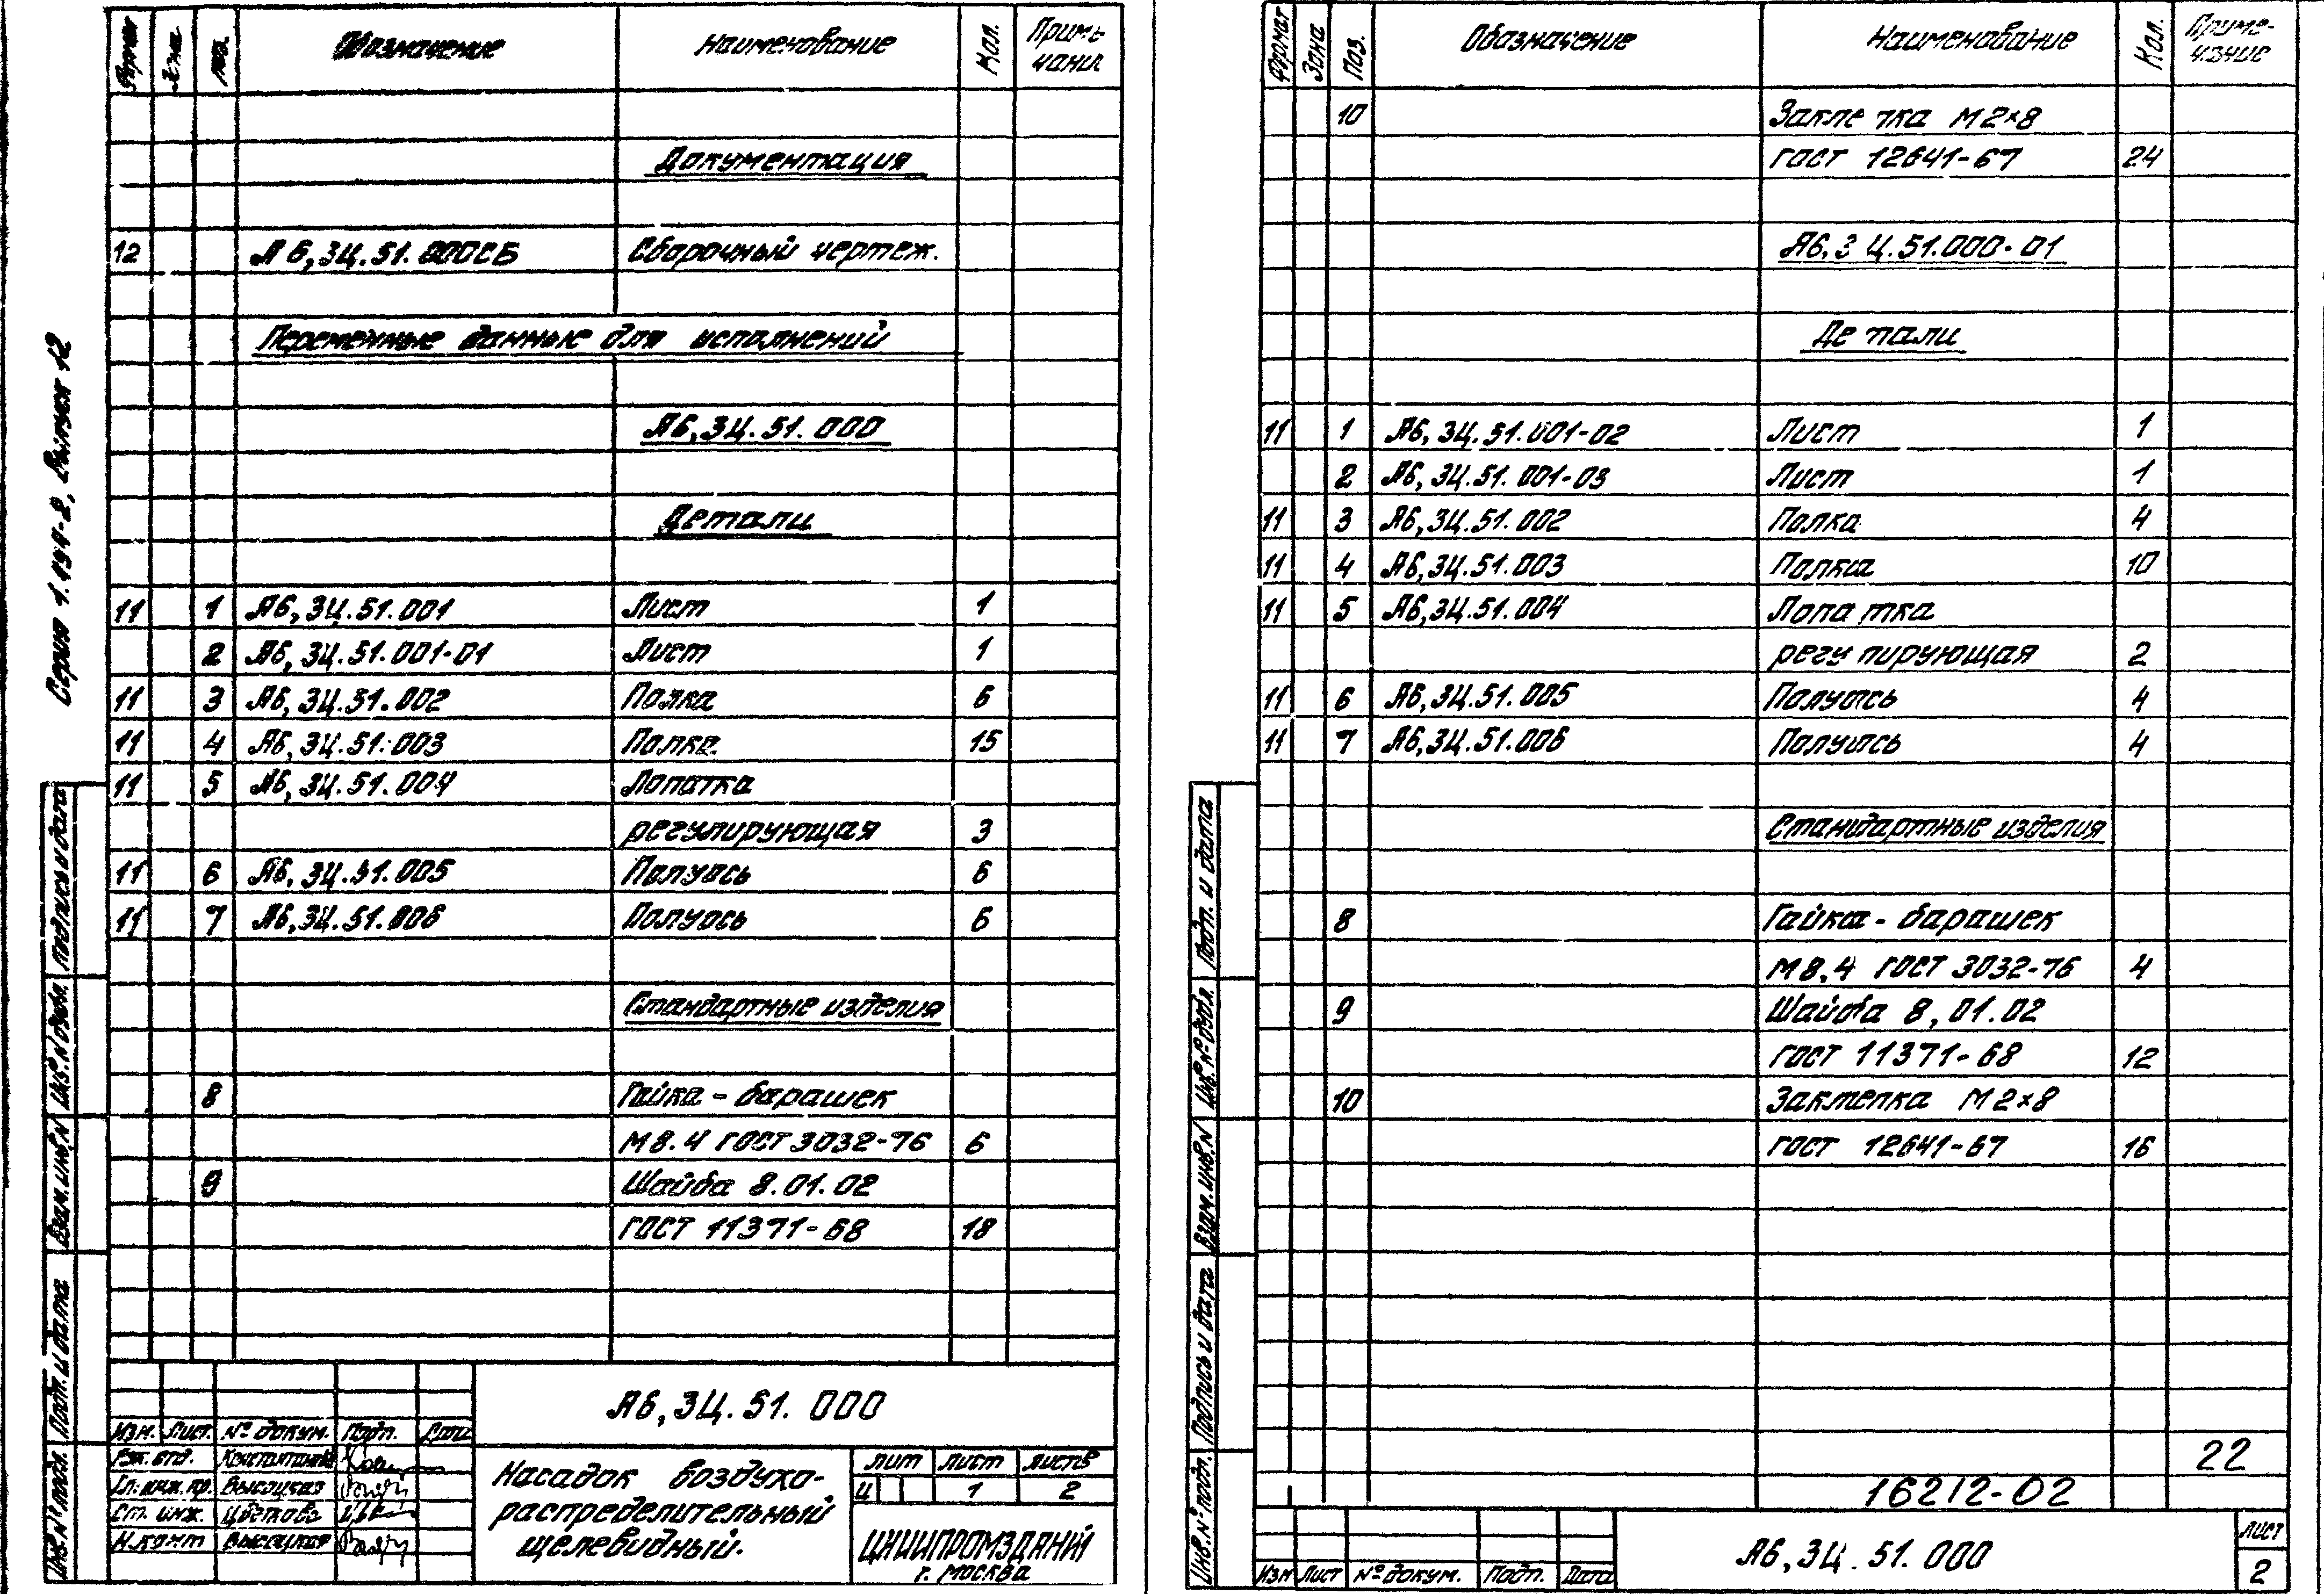 Серия 1.494-2, Выпуск 12
Формат Зона Поз. Обозначение Наименование Кол. Приме-
чание
Документация
12 А6,3Ц.51.000СБ Сборочный чертеж.
Переменные данные для исполнений
А6,3Ц.51.000
Детали
11 1 А6,3Ц.51.001 Лист 1
2 А6,3Ц.51.001-01 Лист 1
11 3 А6,3Ц.51.002 Полка 6
11 4 А6,3Ц.51.003 Полка 15
11 5 А6,3Ц.51.004 Лопатка
регулирующая 3
11 6 А6,3Ц.51.005 Полуось 6
11 7 А6,3Ц.51.006 Полуось 6
Стандартные изделия
8 Гайка-барашек
М8.4 ГОСТ 3032-76 6
9 Шайба 8.01.02
ГОСТ 11371-68 18
Инв.№ подл. Подп. и дата Взам.инв.№ Инв.№ дубл. Подпись и дата
А6,3Ц.51.000
Изм. Лист. № докум. Подп. Дата
Рук. отд. Константинов
Гл. инж. пр. Высоцкая
Ст. инж. Цветкова
Н.конт Высоцкая
Насадок воздухо-
распределительный
щелевидный.
Лит Лист Листов
Ц 1 2
ЦНИИПРОМЗДАНИЙ
г. Москва
Формат Зона Поз. Обозначение Наименование Кол. Приме-
чание
10 Заклепка М2×8
ГОСТ 12641-67 24
А6,3Ц.51.000-01
Детали
11 1 А6,3Ц.51.001-02 Лист 1
2 А6,3Ц.51.001-03 Лист 1
11 3 А6,3Ц.51.002 Полка 4
11 4 А6,3Ц.51.003 Полка 10
11 5 А6,3Ц.51.004 Лопатка
регулирующая 2
11 6 А6,3Ц.51.005 Полуось 4
11 7 А6,3Ц.51.006 Полуось 4
Стандартные изделия
8 Гайка-барашек
М8,4 ГОСТ 3032-76 4
9 Шайба 8,01.02
ГОСТ 11371-68 12
10 Заклепка М2×8
ГОСТ 12641-67 16
22
16212-02
Инв.№ подл. Подпись и дата Взам.инв.№ Инв.№ дубл. Подп. и дата
Изм Лист № докум. Подп. Дата
А6,3Ц.51.000
Лист
2